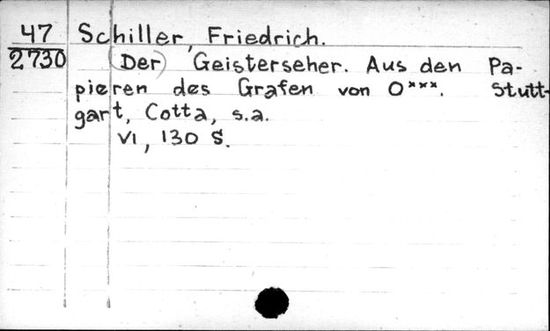 47 Schiller, Friedrich.
2730 (Der) Geisterseher. Aus den Pa-
pieren des Grafen von O***. Stutt-
gart, Cotta, s.a.
VI, 130 S.